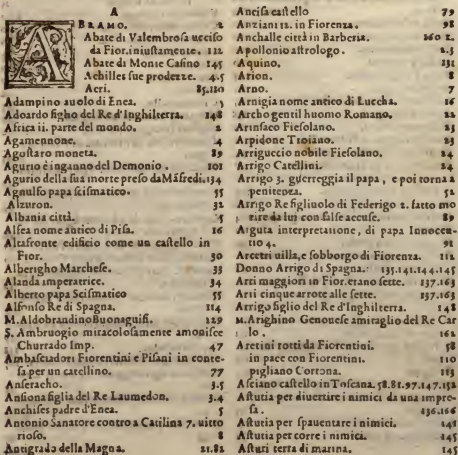 A
BRAMO. 2
Abate di Valembrosa ucciso
da Fior.iniustamente. 112
Abate di Monte Casino 145
Achilles sue prodezze. 4.5
Acri. 85.120
Adampino auolo di Enea.
Adoardo figho del Re d'Inghilterra. 148
Africa ii. parte del mondo. 2
Agamennone. 4
Agostaro moneta. 89
Agurio è inganno del Demonio. 101
Agurio della sua morte preso da Māfredi. 134
Agnulfo papa scismatico. 55
Alzuron. 32
Albania città. 5
Alfea nome antico di Pisa. 16
Altafronte edificio come un castello in
Fior. 30
Alberigho Marchese. 33
Alanda imperatrice. 34
Alberto papa Scismatico 55
Alfonso Re di Spagna. 114
M.Aldobrandino Buonaguisi. 129
S. Ambruogio miracolosamente amonisce
Churrado Imp. 47
Ambasciadori Fiorentini e Pisani in conte-
sa per un catellino. 77
Anseracho. 3.5
Ansiona figlia del Re Laumedon. 3.4
Anchises padre d'Enea. 5
Antonio Sanatore contro a Catilina 7. uitto
rioso. 8
Antigrado della Magna. 21.82
Ancisa castello 79
Anziani 12. in Fiorenza. 98
Anchalle città in Barberia. 160 2.
Apollonio astrologo. 2.3
Aquino. 131
Arion. 8
Arno. 7
Arnigia nome antico di Luccha. 16
Archo gentil huomo Romano. 22
Arinfaco Fiesolano. 23
Arpidone Troiano. 23
Arriguccio nobile Fiesolano. 24
Arrigo Catellini. 24
Arrigo 3. guerreggia il papa, e poi torna a
penitenza. 52
Arrigo Re figliuolo di Federigo 2. fatto mo
rire da lui con false accuse. 89
Arguta interpretatione, di papa Innocen-
tio 4. 91
Arcetri uilla, e sobborgo di Fiorenza. 112
Donno Arrigo di Spagna. 135.141.144.145
Arti maggiori in Fior. erano sette. 137.163
Arti cinque arrote alle sette. 137.163
Arrigo figlio del Re d'Inghilterra. 148
M.Arighino Genouese amiraglio del Re Car
lo. 162
Aretini rotti da Fiorentini. 58
in pace con Fiorentini. 110
pigliano Cortona. 115
Asciano castello in Toscana. 58.81.97.147.152
Astutia per diuertire i nimici da una impre-
sa. 136.166
Astutia per spauentare i nimici. 141
Astutia per corre i nimici. 145
Asturi terra di marina. 145